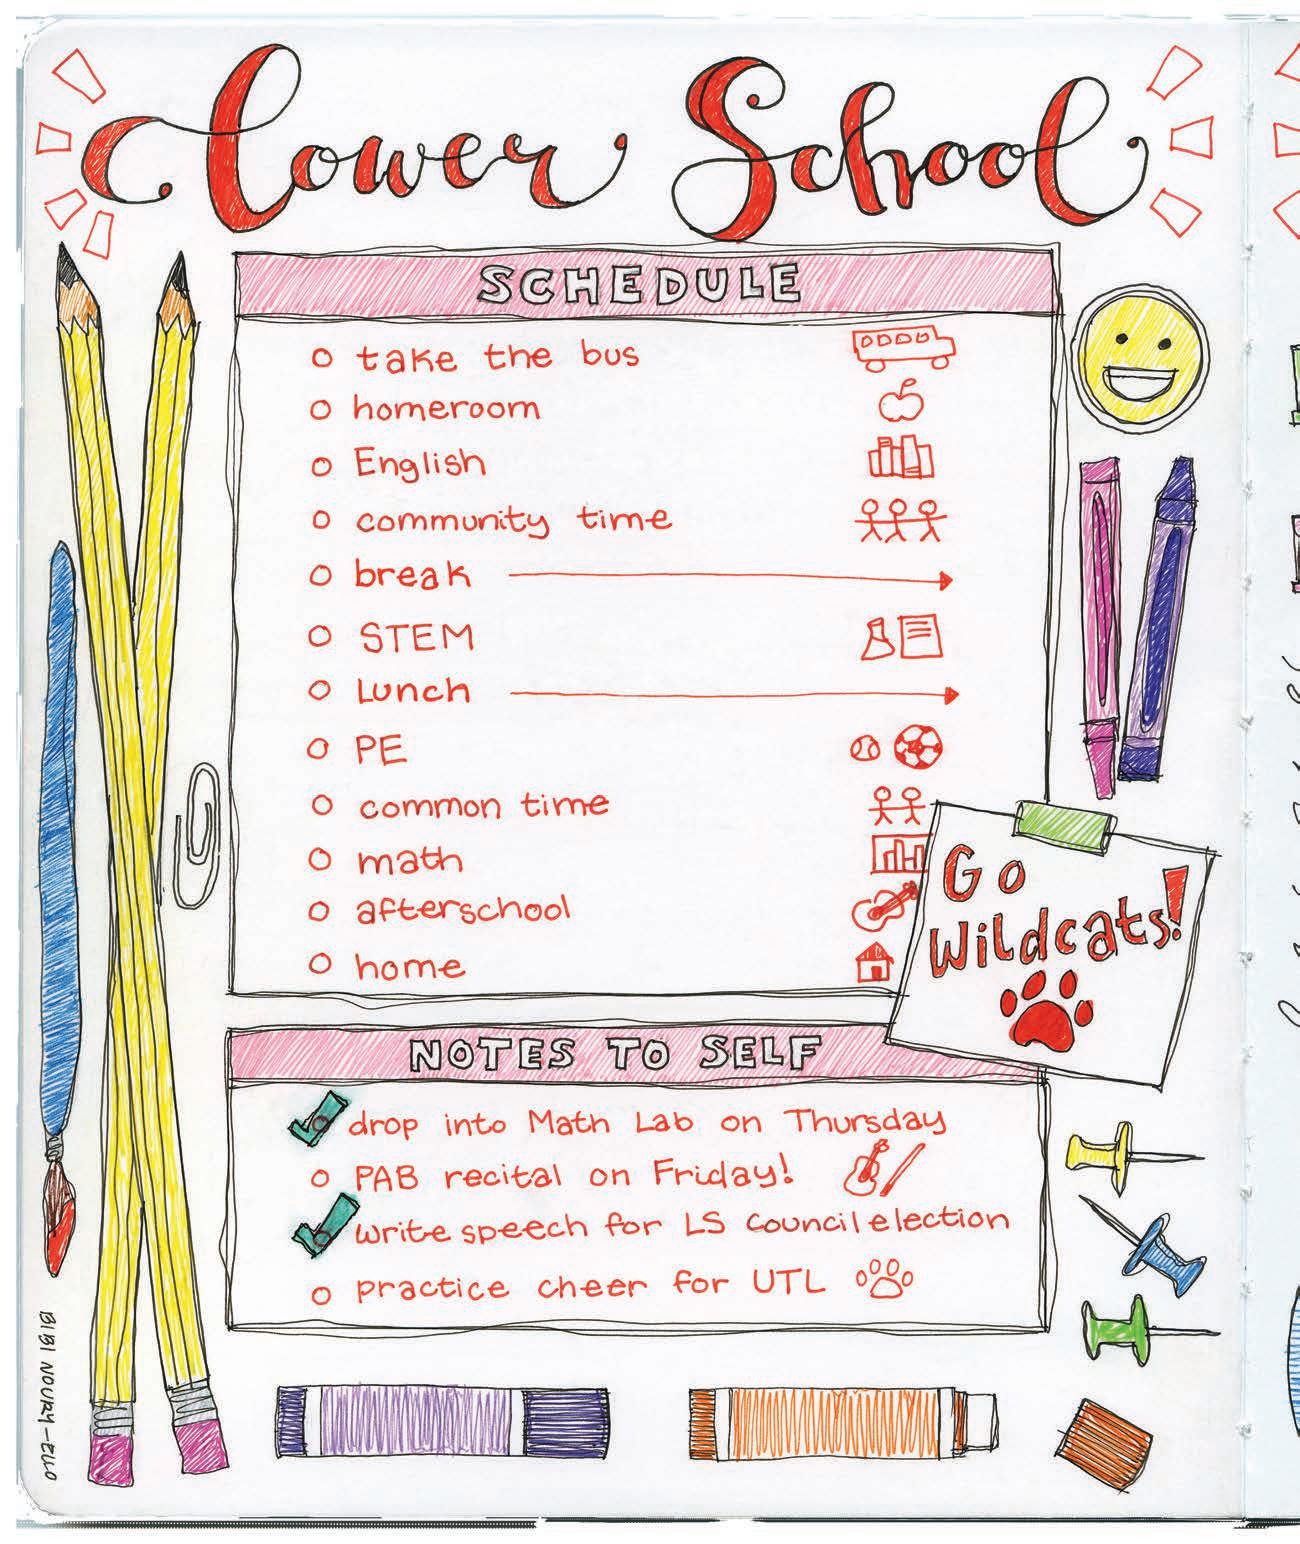 Lower School
SCHEDULE
take the bus
homeroom
English
community time
break
STEM
Lunch
PE
common time
math
afterschool
home
Go
Wildcats!
NOTES TO SELF
drop into Math Lab on Thursday
PAB recital on Friday!
write speech for LS Council election
practice cheer for UTL
BIBI NOURY-ELLO